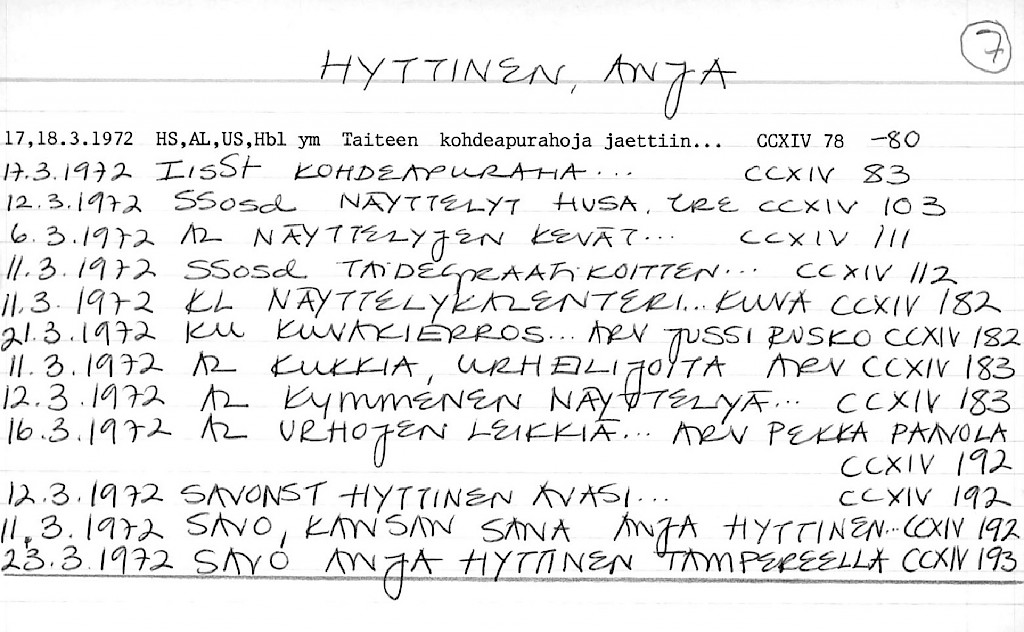 7
HYTTINEN, ANJA
17,18.3.1972 HS,AL,US,Hbl ym Taiteen kohdeapurahoja jaettiin... CCXIV 78 -80
17.3.1972 IisSt KOHDEAPURAHA... CCXIV 83
12.3.1972 SSosd NÄYTTELYT HUSA, TRE CCXIV 103
6.3.1972 AL NÄYTTELYJEN KEVÄT... CCXIV 111
11.3.1972 SSosd TAIDEGRAAFIKOITTEN... CCXIV 112
11.3.1972 KL NÄYTTELYKALENTERI... KUVA CCXIV 182
21.3.1972 KU KUVAKIERROS... ARV JUSSI RUSKO CCXIV 182
11.3.1972 AL KUKKIA, URHEILIJOITA ARV CCXIV 183
12.3.1972 AL KYMMENEN NÄYTTELYÄ... CCXIV 183
16.3.1972 AL URHOJEN LEIKKIÄ... ARV PEKKA PAAVOLA
CCXIV 192
12.3.1972 SAVONST HYTTINEN AVASI... CCXIV 192
11.3.1972 SAVO, KANSAN SANA ANJA HYTTINEN... CCXIV 192
23.3.1972 SAVO ANJA HYTTINEN TAMPEREELLA CCXIV 193